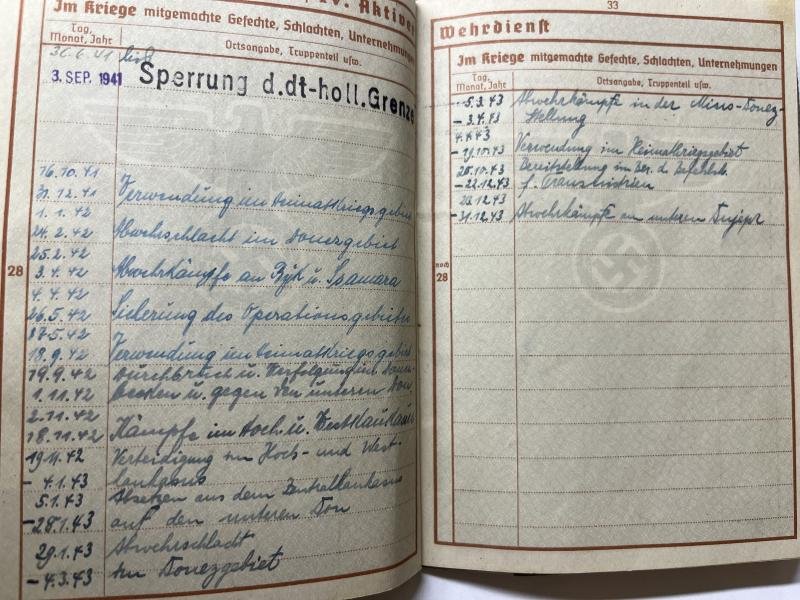 IV. Aktiver
Im Kriege mitgemachte Gefechte, Schlachten, Unternehmungen
Tag, Monat, Jahr
Ortsangabe, Truppenteil usw.
30.6.41 bis
3. SEP. 1941 Sperrung d.dt-holl.Grenze
16.10.41
31.12.41 Verwendung im Heimatkriegsgebiet
1.1.42
24.2.42 Abwehrschlacht im Donezgebiet
25.2.42
3.4.42 Abwehrkämpfe an Bjk u. Ssamara
4.4.42
26.5.42 Sicherung des Operationsgebietes
27.5.42
18.9.42 Verwendung im Heimatkriegsgebiet
19.9.42 Durchbruch u. Verfolgung im Donez-
1.11.42 becken u. gegen den unteren Don
2.11.42
18.11.42 Kämpfe im Hoch. u. Westkaukasus
19.11.42 Verteidigung im Hoch- und West-
- 4.1.43 kaukasus
5.1.43 Absetzen aus dem Zentralkaukasus
- 28.1.43 auf den unteren Don
29.1.43 Abwehrschlacht
- 4.3.43 im Donezgebiet
28
33
Wehrdienst
Im Kriege mitgemachte Gefechte, Schlachten, Unternehmungen
Tag, Monat, Jahr
Ortsangabe, Truppenteil usw.
- 5.3.43 Abwehrkämpfe in der Mius-Donez-
- 3.4.43 Stellung
4.4.43
- 19.10.43 Verwendung im Heimatkriegsgebiet
20.10.43 Bereitstellung im Ber. d. Befehlsh.
- 22.12.43 f. Transnistrien
23.12.43
- 31.12.43 Abwehrkämpfe am unteren Dnjepr
noch
28